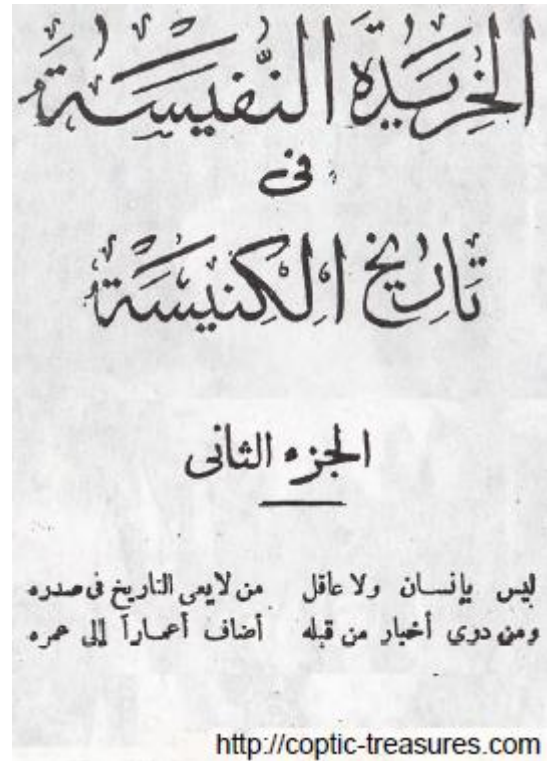 الخريدة النفيسة
فى
تاريخ الكنيسة
الجزء الثانى
ليس بإنسان ولا عاقل من لا يعى التاريخ فى صدره
ومن درى أخبار من قبله أضاف أعماراً إلى عمره
http://coptic-treasures.com